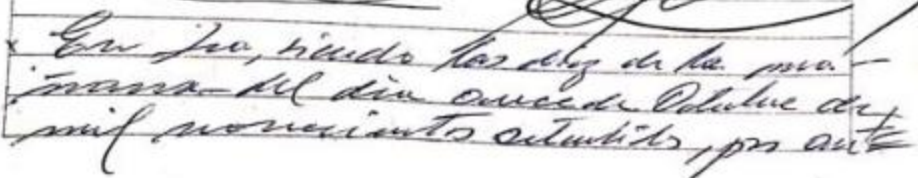 En Ica, siendo las diez de la ma-
ñana del dia once de Octubre de
mil novecientos setentidós, por ante